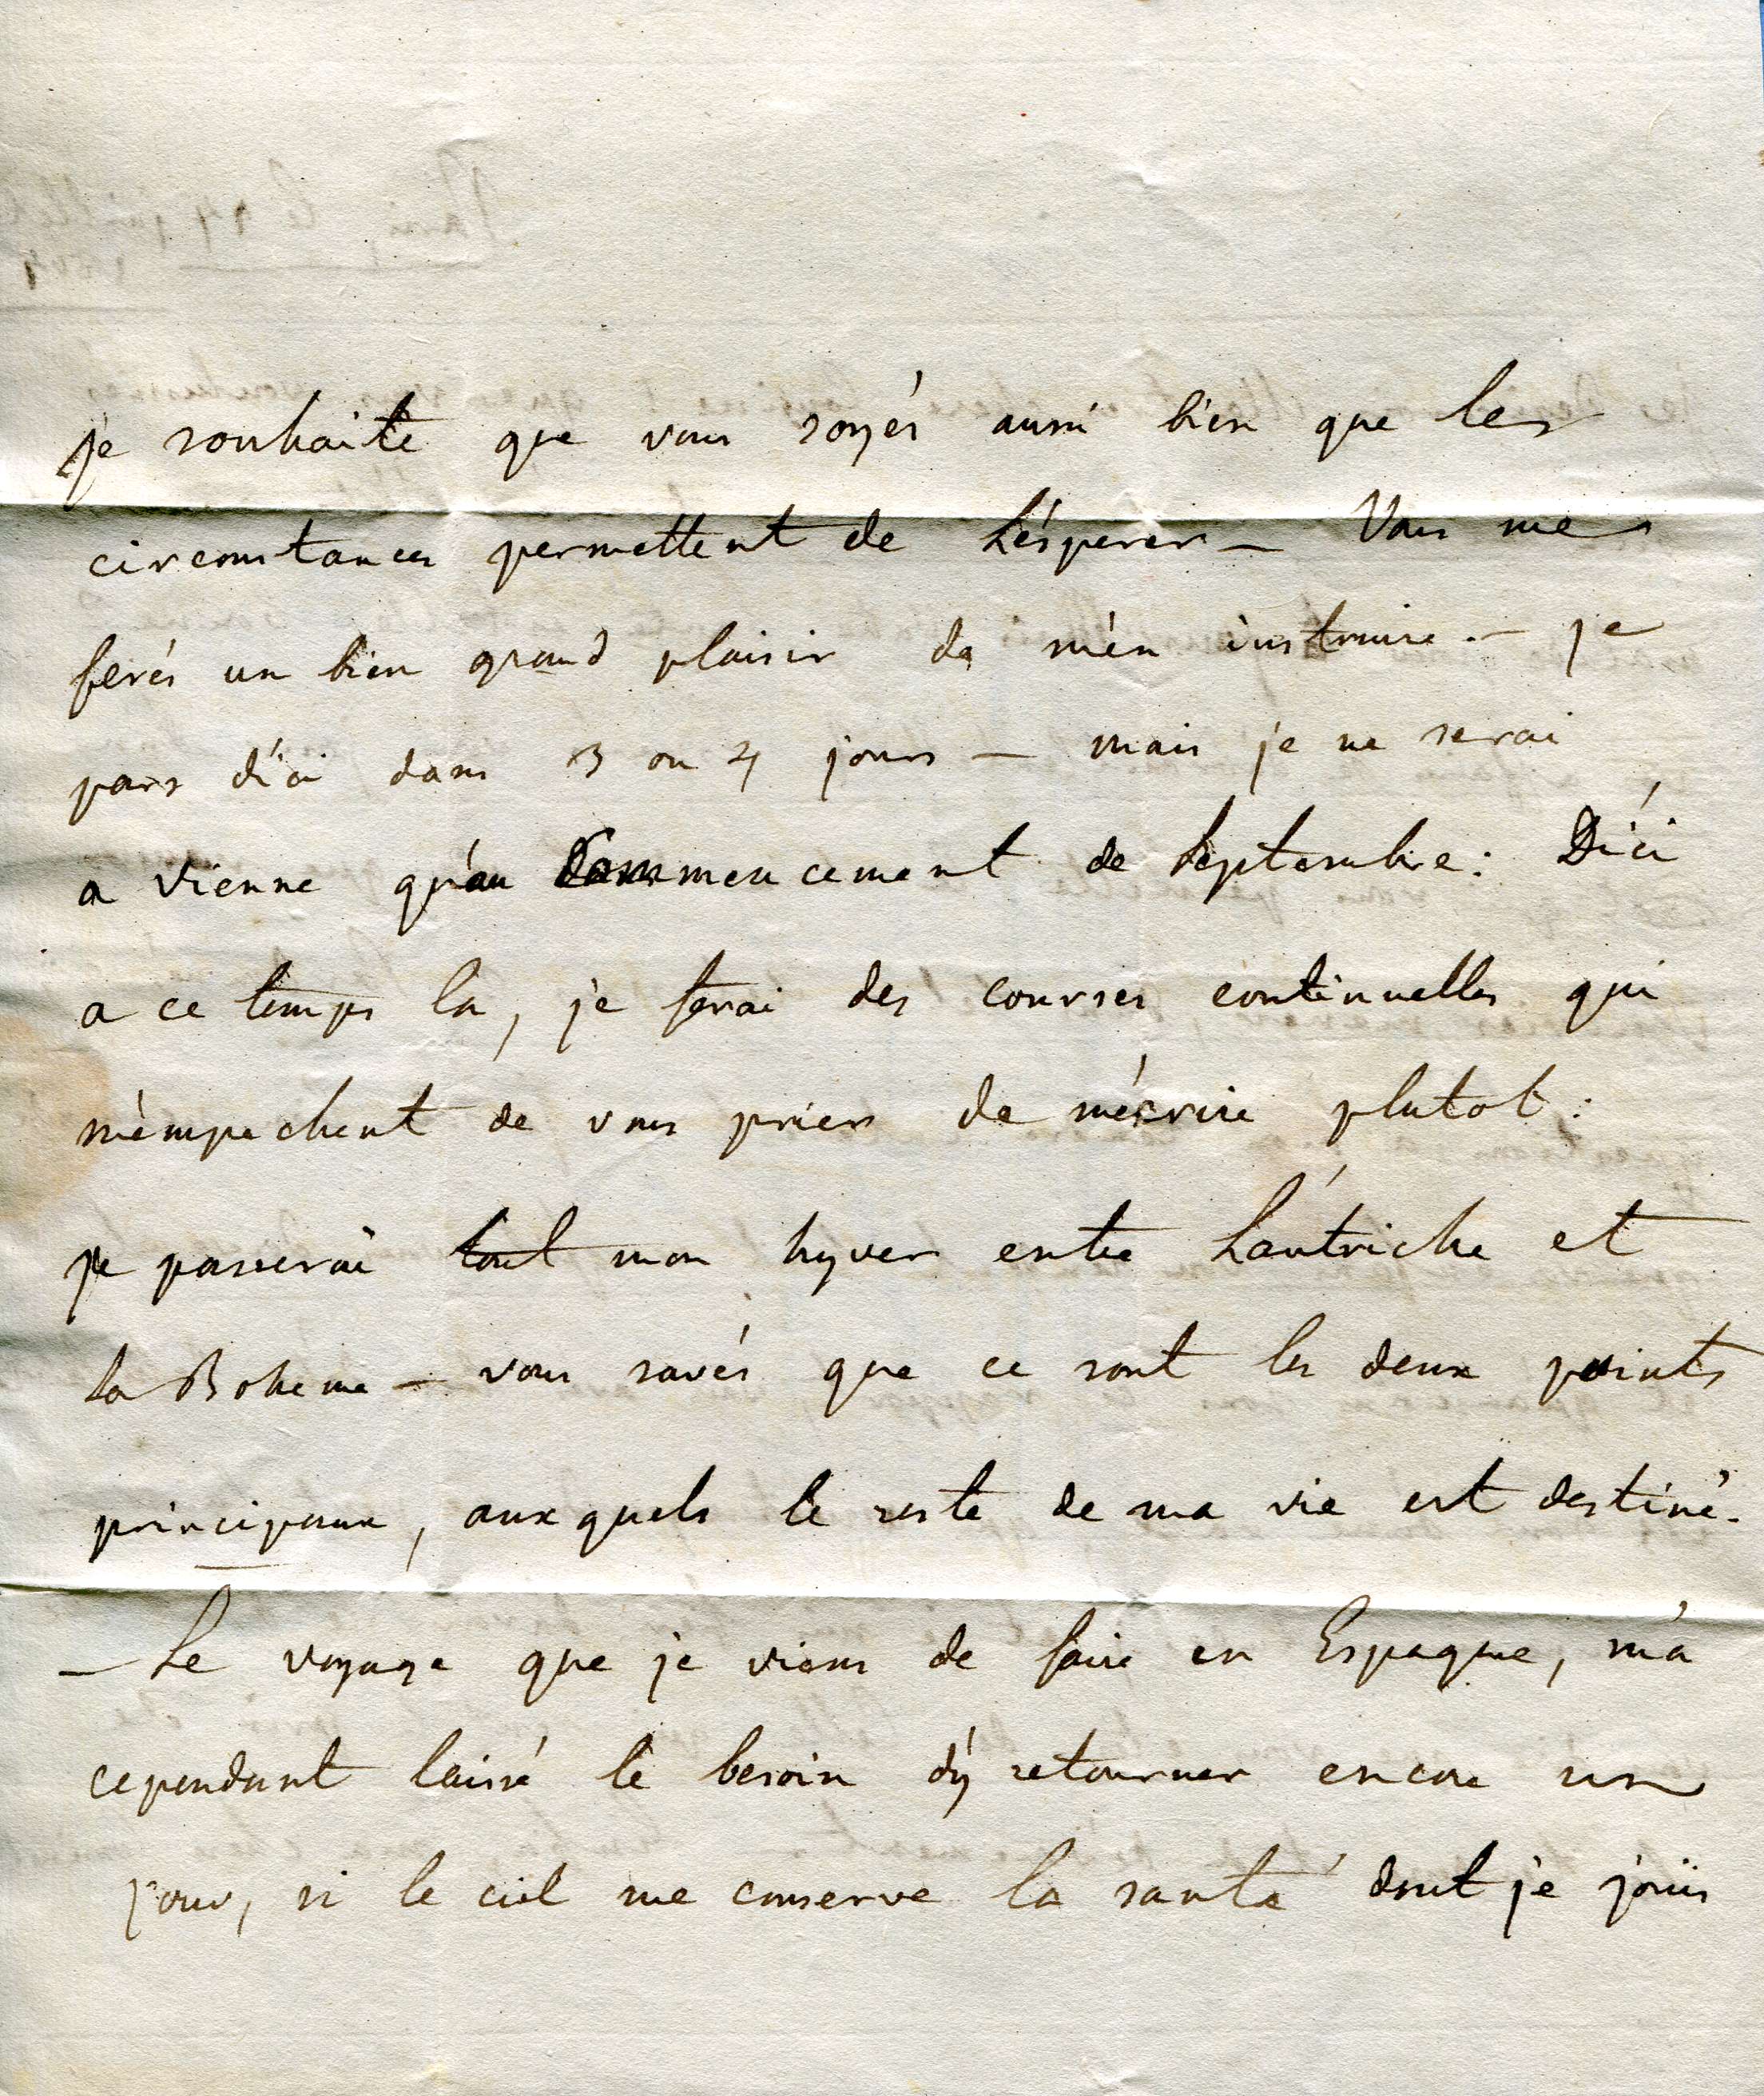 je souhaite que vous soyés aussi bien que les
circonstances permettent de L'ésperer — Vous me
ferés un bien grand plaisir de m'en instruire. — je
pars d'ici dans 3 ou 4 jours — mais je ne serai
a vienne qu'au Commencement de Septembre : D'ici
a ce temps la, je ferai des courses continuelles qui
m'empechent de vous prier de m'écrire plutot :
je passerai tout mon hyver entre L'autriche et
la Boheme — vous savés que ce sont les deux points
principaux, auxquels le reste de ma vie est destiné.
— Le voyage que je viens de faire en Espagne, m'a
cependant laissé le besoin d'y retourner encore un
jour, si le ciel me conserve la santé dont je jouis